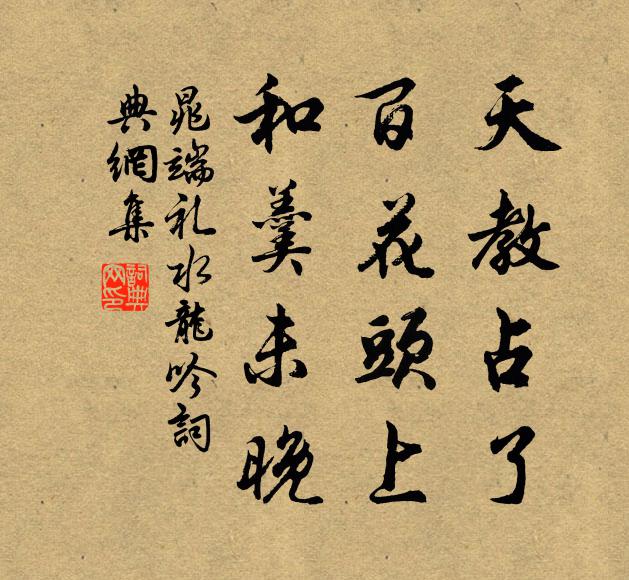 天教占了
百花頭上
和羹未晚
晁端礼水龍吟詞
典網集
詞典網印